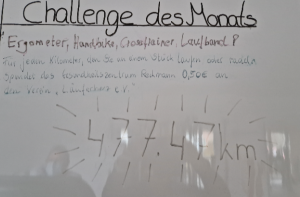 Challenge des Monats
Ergometer, Handbike, Crosstrainer, Laufband P
Für jeden Kilometer, den Sie an einem Stück laufen oder radeln
Spendet das 0,50€ an
dem Verein, "Läuferherz e.V."
477.47km